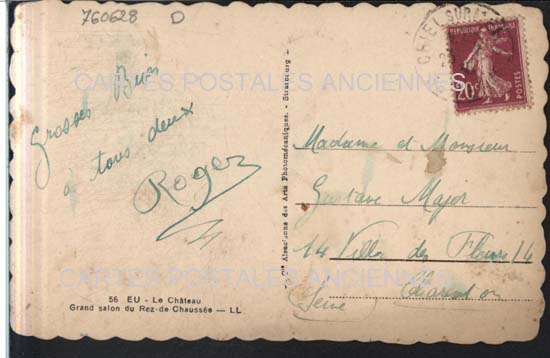 760628 D
CRIEL SUR
REPUBLIQUE FRANÇAISE
20c
POSTES
CARTES POSTALES ANCIENNES
Grosses Bises
à tous deux
Roger
Cie Alsacienne des Arts Photomécaniques. - Strasbourg
Madame et Monsieur
Gustave Major
14 Villa des Fleurs
Charenton
Seine
CARTES POSTALES ANCIENNES
56 EU - Le Château
Grand salon du Rez-de-Chaussée — LL